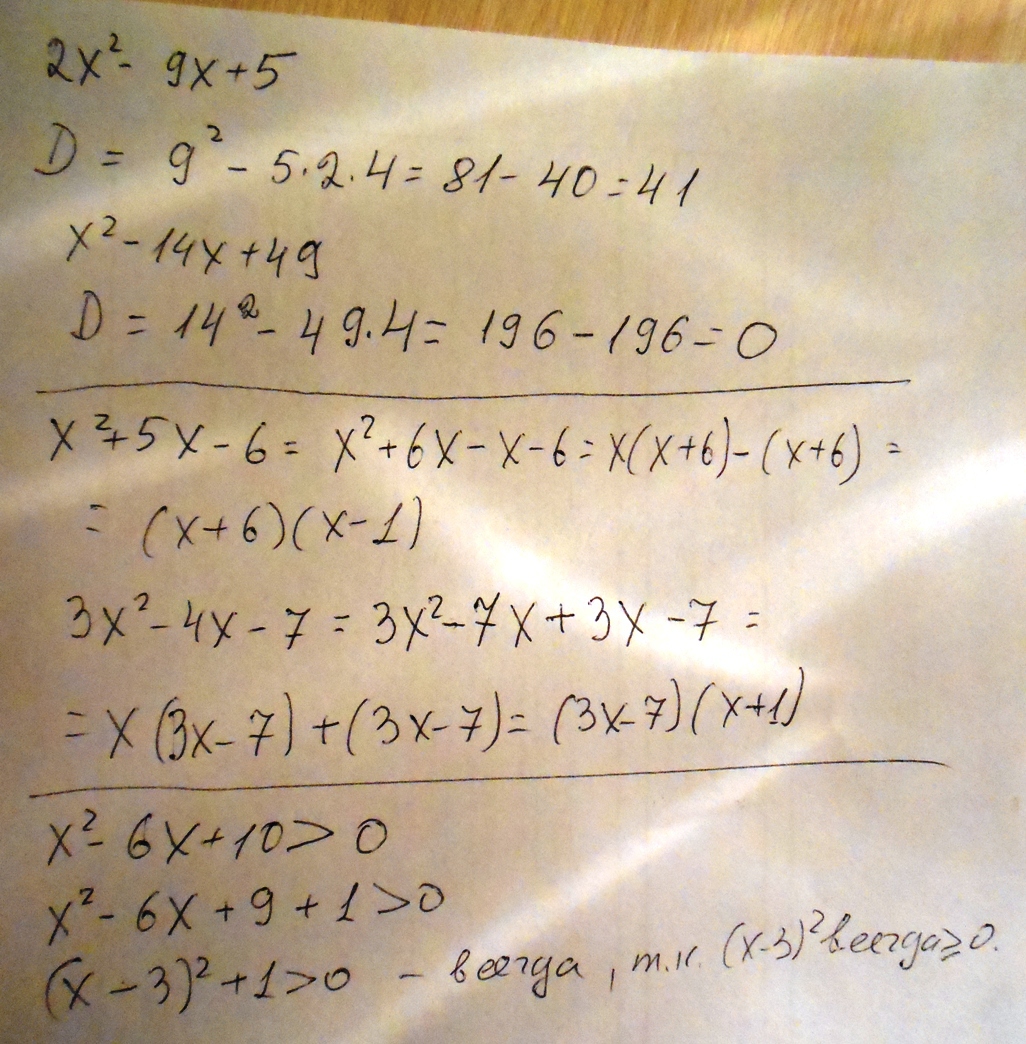 2x² - 9x + 5
D = 9² - 5·2·4 = 81 - 40 = 41
x² - 14x + 49
D = 14² - 49·4 = 196 - 196 = 0
x² + 5x - 6 = x² + 6x - x - 6 = x(x+6) - (x+6) =
= (x+6)(x-1)
3x² - 4x - 7 = 3x² - 7x + 3x - 7 =
= x(3x-7) + (3x-7) = (3x-7)(x+1)
x² - 6x + 10 > 0
x² - 6x + 9 + 1 > 0
(x - 3)² + 1 > 0 - всегда, т.к. (x-3)² всегда ≥ 0.